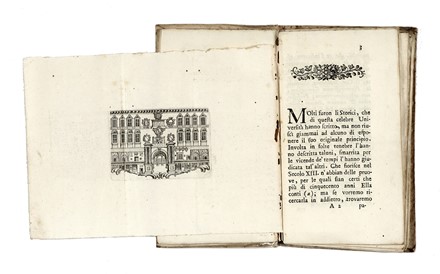 3
MOlti furon li Storici, che
di questa celebre Uni-
versità hanno scritto, ma non riu-
scì giammai ad alcuno di espo-
nere il suo originale principio.
Involta in folte tenebre l'han-
no descritta taluni, smarrita per
le vicende de' tempi l'hanno giu-
dicata tal' altri. Che fiorisse nel
Secolo XIII. n'abbiam delle pruo-
ve, per le quali sian certi che
più di cinquecento anni Ella
conti (a); ma se vorremo ri-
cercarla in addietro, trovaremo
A 2 pa-